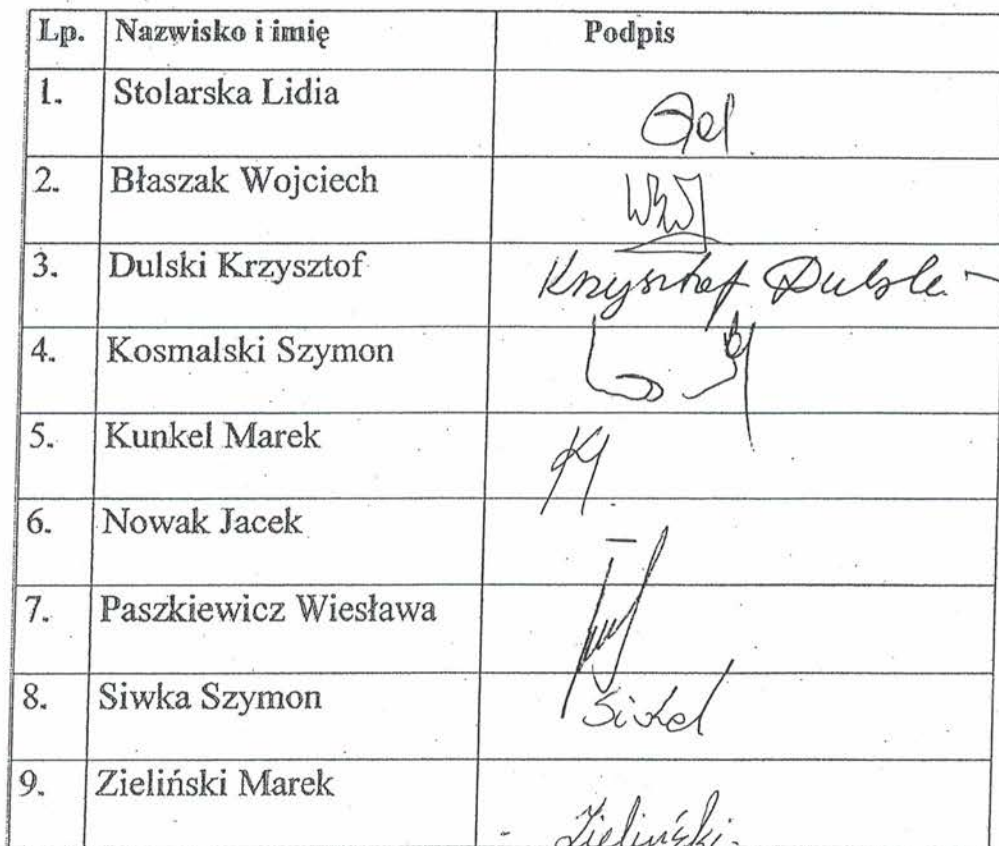 Lp. Nazwisko i imię Podpis
1. Stolarska Lidia
2. Błaszak Wojciech
3. Dulski Krzysztof Krzysztof Dulski
4. Kosmalski Szymon
5. Kunkel Marek
6. Nowak Jacek
7. Paszkiewicz Wiesława
8. Siwka Szymon
9. Zieliński Marek Zieliński